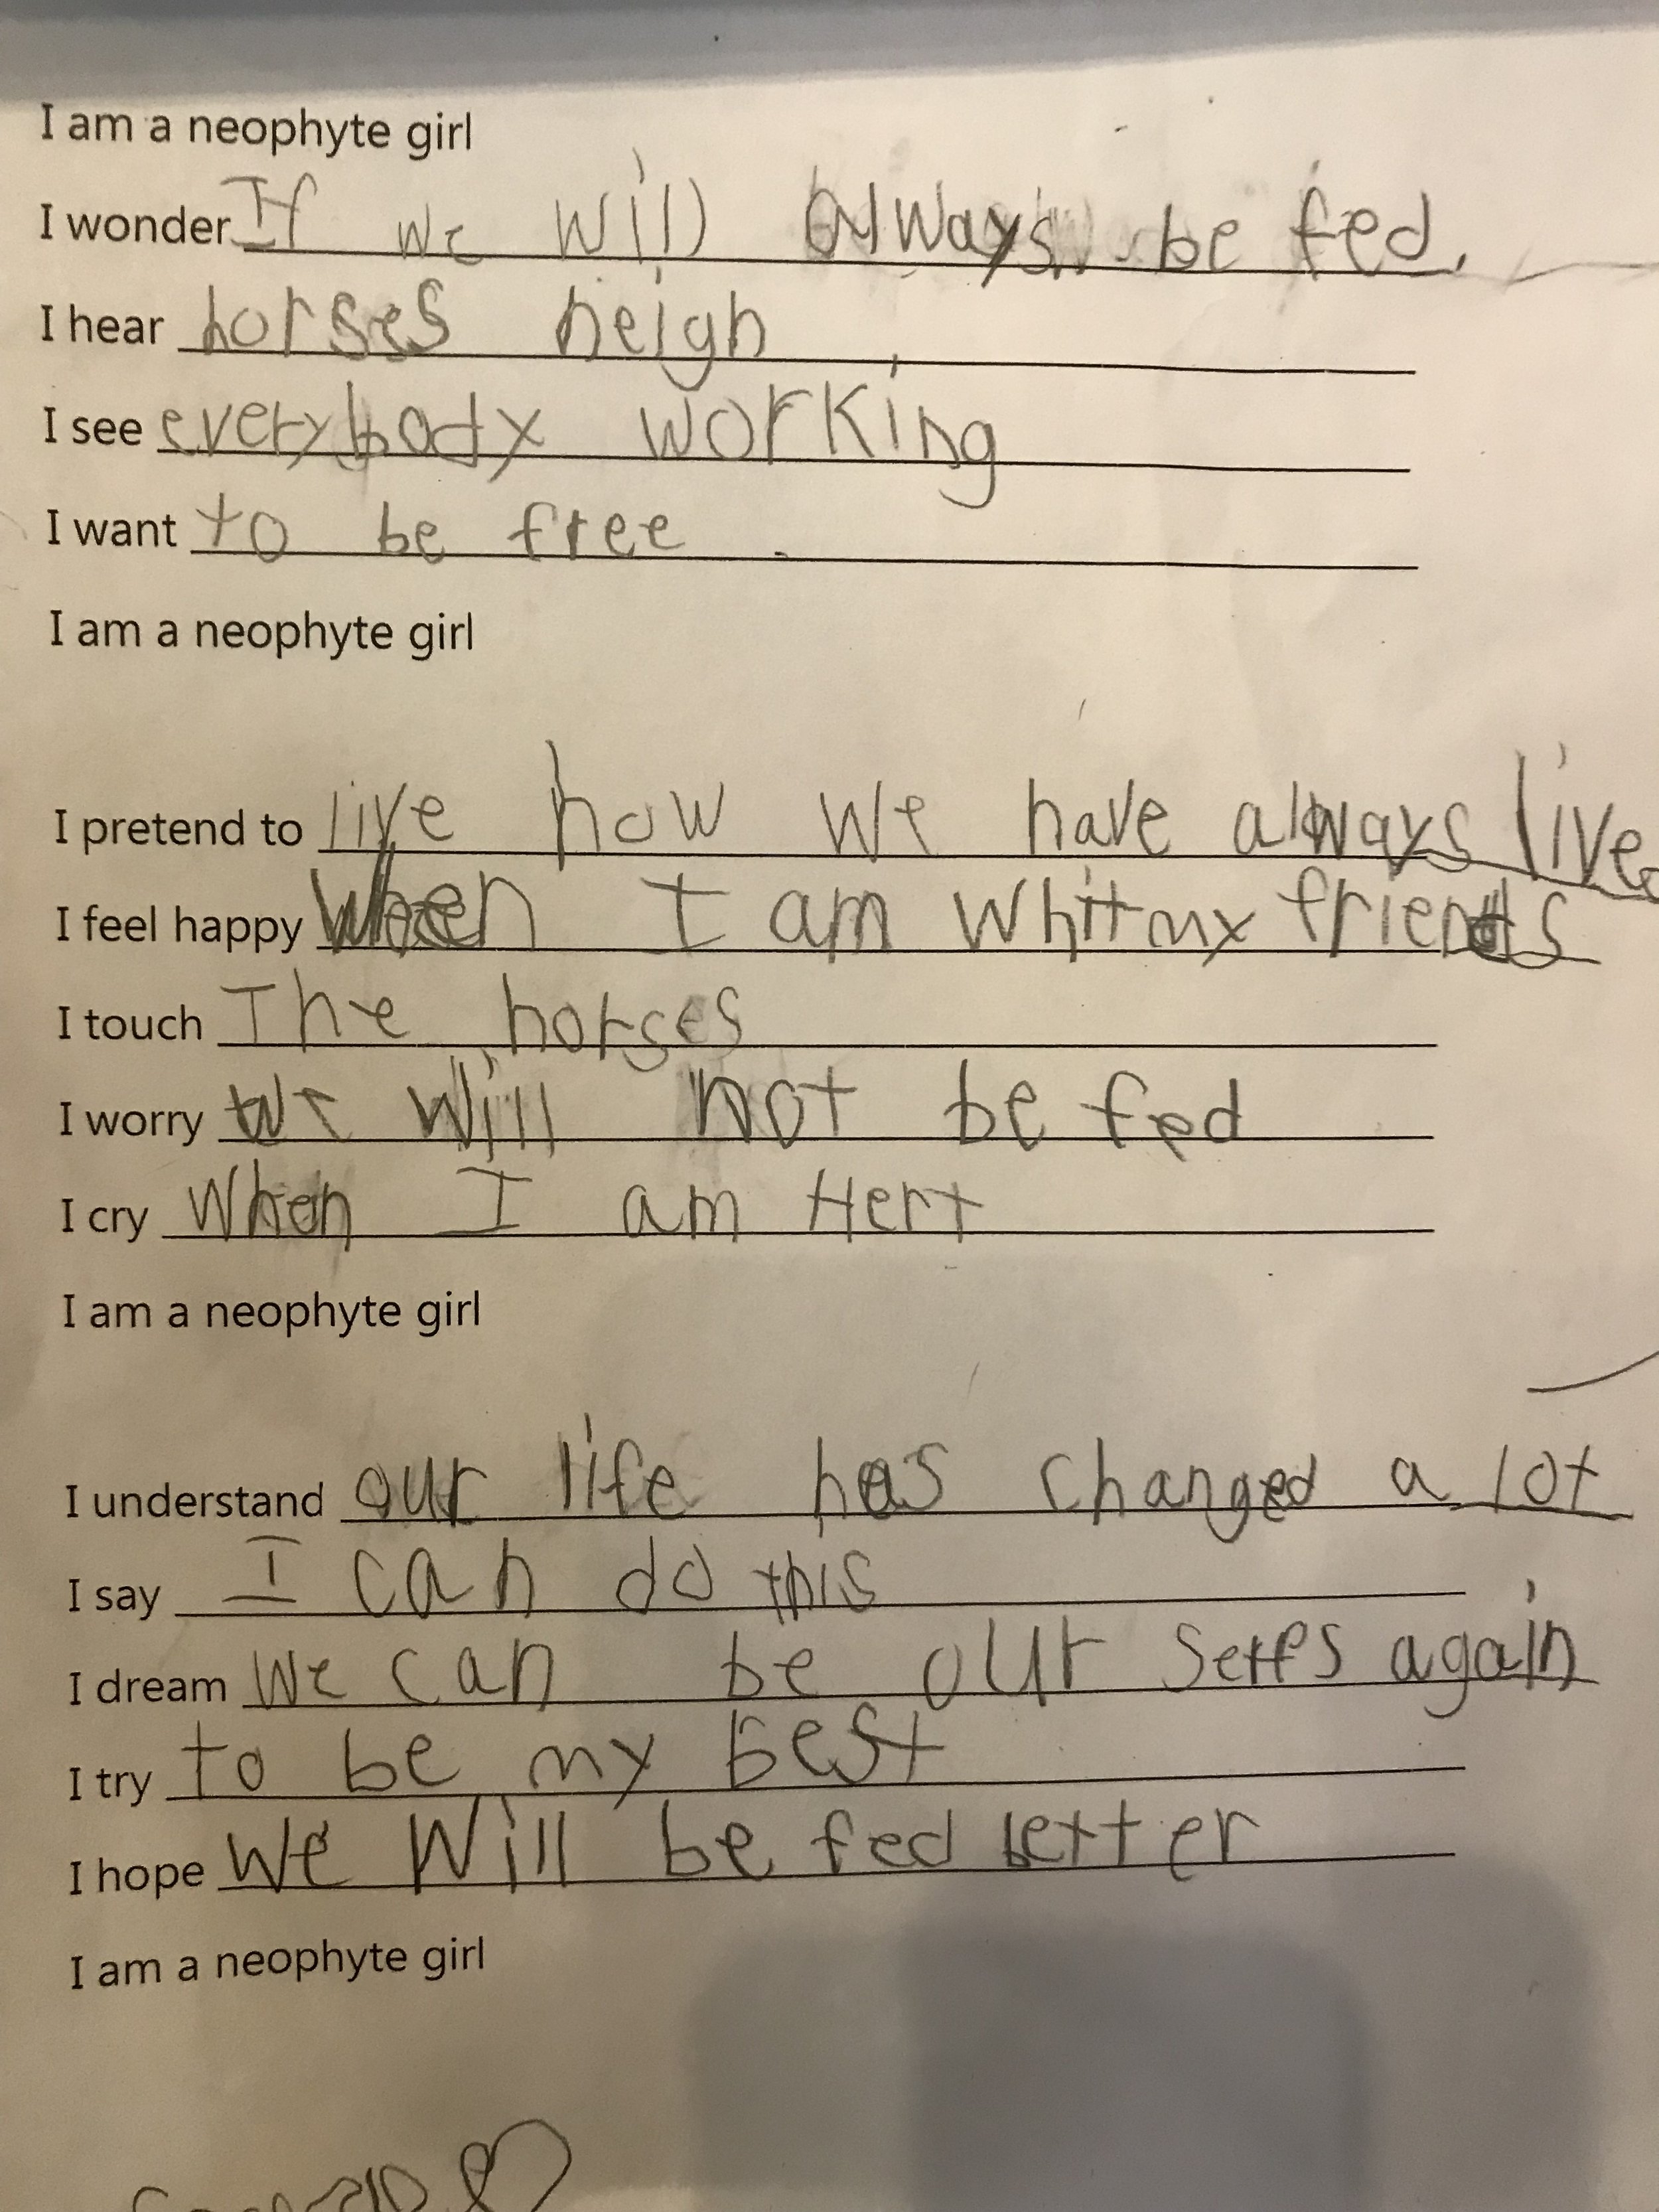 I am a neophyte girl
I wonder If we will always be fed.
I hear horses neigh
I see everybody working
I want to be free.
I am a neophyte girl
I pretend to live how we have always live
I feel happy When I am Whit my friends
I touch The horses
I worry we Will not be fed
I cry When I am Hert
I am a neophyte girl
I understand our life has changed a lot
I say I can do this
I dream We can be our again
I try to be my best
I hope We Will be fed better
I am a neophyte girl